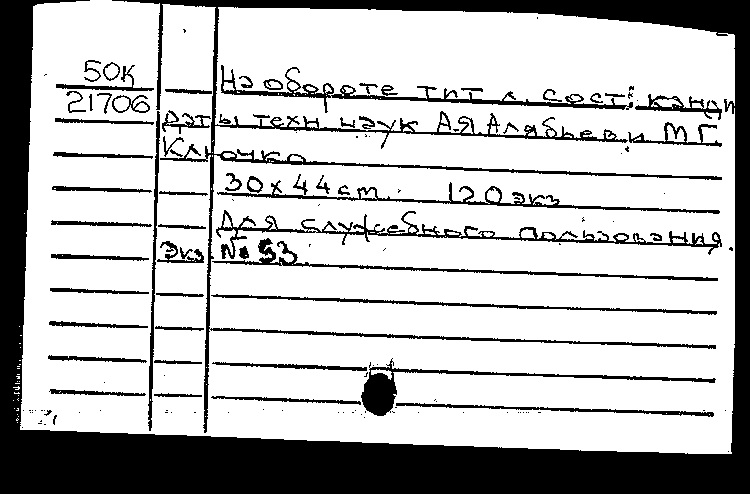 50К
На обороте тит л. сост: канди
21706
даты техн наук А.Я.Алябьев и М Г.
Клочко
30 х 44 cm. 120 экз
Для служебного пользования.
Экз № 53.